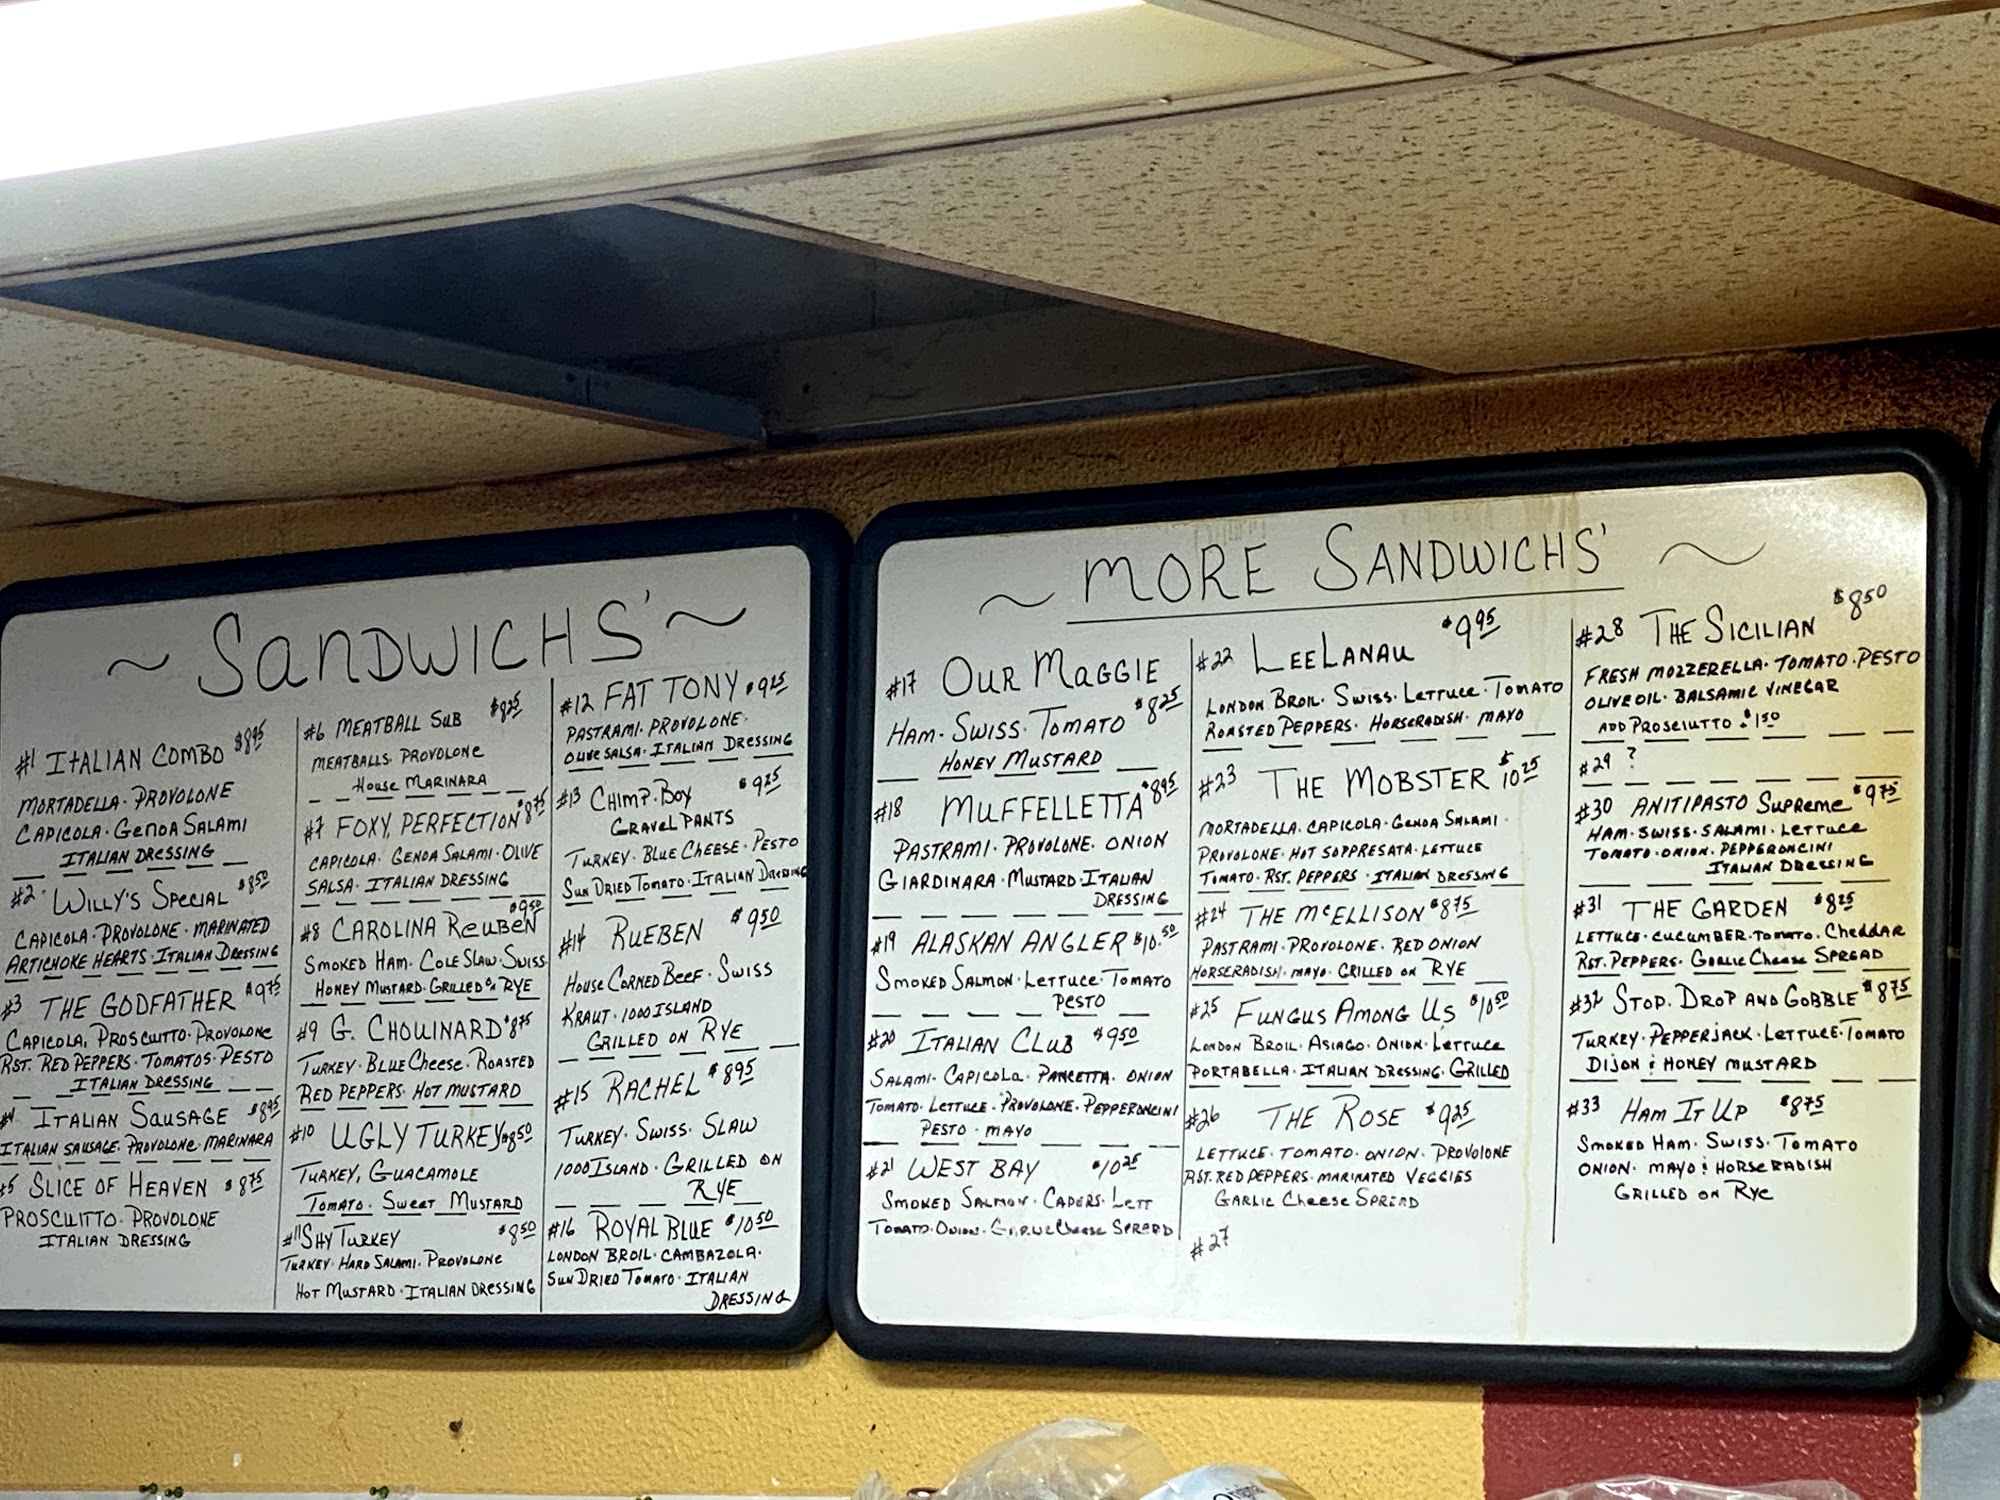 ~ SANDWICHS' ~
#1 ITALIAN COMBO $8.95
MORTADELLA · PROVOLONE
CAPICOLA · GENOA SALAMI
ITALIAN DRESSING
#2 WILLY'S SPECIAL $8.50
CAPICOLA · PROVOLONE · MARINATED
ARTICHOKE HEARTS · ITALIAN DRESSING
#3 THE GODFATHER $9.75
CAPICOLA, PROSCIUTTO · PROVOLONE
RST. RED PEPPERS · TOMATOS · PESTO
ITALIAN DRESSING
#4 ITALIAN SAUSAGE $8.95
ITALIAN SAUSAGE · PROVOLONE · MARINARA
#5 SLICE OF HEAVEN $8.75
PROSCIUTTO · PROVOLONE
ITALIAN DRESSING
#6 MEATBALL SUB $8.25
MEATBALLS · PROVOLONE
HOUSE MARINARA
#7 FOXY PERFECTION $8.75
CAPICOLA · GENOA SALAMI · OLIVE
SALSA · ITALIAN DRESSING
#8 CAROLINA REUBEN $9.50
SMOKED HAM · COLE SLAW · SWISS
HONEY MUSTARD · GRILLED ON RYE
#9 G. CHOUINARD $8.75
TURKEY · BLUE CHEESE · ROASTED
RED PEPPERS · HOT MUSTARD
#10 UGLY TURKEY $8.50
TURKEY, GUACAMOLE
TOMATO · SWEET MUSTARD
#11 SHY TURKEY $8.50
TURKEY · HARD SALAMI · PROVOLONE
HOT MUSTARD · ITALIAN DRESSING
#12 FAT TONY $9.25
PASTRAMI · PROVOLONE ·
OLIVE SALSA · ITALIAN DRESSING
#13 CHIMP · BOY $9.25
GRAVEL PANTS
TURKEY · BLUE CHEESE · PESTO
SUN DRIED TOMATO · ITALIAN DRESSING
#14 RUEBEN $9.50
HOUSE CORNED BEEF · SWISS
KRAUT · 1000 ISLAND
GRILLED ON RYE
#15 RACHEL $8.95
TURKEY · SWISS · SLAW
1000 ISLAND · GRILLED ON
RYE
#16 ROYAL BLUE $10.50
LONDON BROIL · CAMBAZOLA ·
SUN DRIED TOMATO · ITALIAN
DRESSING
~ MORE SANDWICHS' ~
#17 OUR MAGGIE
HAM · SWISS · TOMATO $8.25
HONEY MUSTARD
#18 MUFFELLETTA $8.95
PASTRAMI · PROVOLONE · ONION
GIARDINARA · MUSTARD · ITALIAN
DRESSING
#19 ALASKAN ANGLER $10.50
SMOKED SALMON · LETTUCE · TOMATO
PESTO
#20 ITALIAN CLUB $9.50
SALAMI · CAPICOLA · PANCETTA · ONION
TOMATO · LETTUCE · PROVOLONE · PEPPERONCINI
PESTO · MAYO
#21 WEST BAY $10.25
SMOKED SALMON · CAPERS · LETT
TOMATO · ONION · GARLIC CHEESE SPREAD
#22 LEELANAU $9.95
LONDON BROIL · SWISS · LETTUCE · TOMATO
ROASTED PEPPERS · HORSERADISH · MAYO
#23 THE MOBSTER $10.25
MORTADELLA · CAPICOLA · GENOA SALAMI ·
PROVOLONE · HOT SOPPRESATA · LETTUCE
TOMATO · RST. PEPPERS · ITALIAN DRESSING
#24 THE McELLISON $8.75
PASTRAMI · PROVOLONE · RED ONION
HORSERADISH · MAYO · GRILLED ON RYE
#25 FUNGUS AMONG US $10.50
LONDON BROIL · ASIAGO · ONION · LETTUCE
PORTABELLA · ITALIAN DRESSING · GRILLED
#26 THE ROSE $9.25
LETTUCE · TOMATO · ONION · PROVOLONE
RST. RED PEPPERS · MARINATED VEGGIES
GARLIC CHEESE SPREAD
#27
#28 THE SICILIAN $8.50
FRESH MOZZERELLA · TOMATO · PESTO
OLIVE OIL · BALSAMIC VINEGAR
ADD PROSCIUTTO · $1.50
#29 ?
#30 ANITIPASTO SUPREME $9.75
HAM · SWISS · SALAMI · LETTUCE
TOMATO · ONION · PEPPERONCINI
ITALIAN DRESSING
#31 THE GARDEN $8.25
LETTUCE · CUCUMBER · TOMATO · CHEDDAR
RST. PEPPERS · GARLIC CHEESE SPREAD
#32 STOP. DROP AND GOBBLE $8.75
TURKEY · PEPPERJACK · LETTUCE · TOMATO
DIJON & HONEY MUSTARD
#33 HAM IT UP $8.75
SMOKED HAM · SWISS · TOMATO
ONION · MAYO & HORSERADISH
GRILLED ON RYE
Original